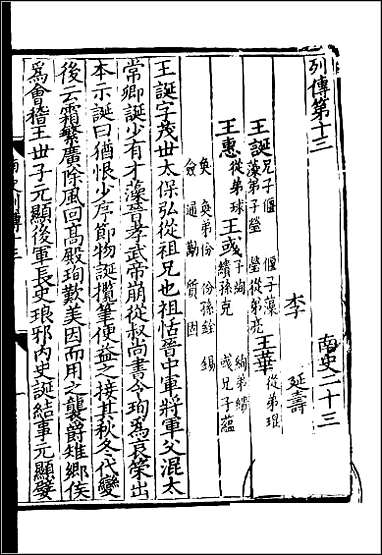 列傳第十三 南史二十三
李 延壽
王誕 兄子偃 偃子藻 藻弟子瑩 瑩從弟亮 王華 從弟琨
王惠 從弟球 王彧 子絢 絢弟繢 繢孫克 彧兄子蘊
奐 奐弟份 份孫銓 錫
僉 通 勱 質 固
王誕字茂世太保弘從祖兄也祖恬晉中軍將軍父混太
常卿誕少有才藻晉孝武帝崩從叔尚書令珣爲哀策出
本示誕曰猶恨少序節物誕攬筆便益之接其秋冬代變
後云霜繁廣除風回高殿珣歎美因而用之襲爵雉鄉侯
爲會稽王世子元顯後軍長史琅邪內史誕結事元顯嬖